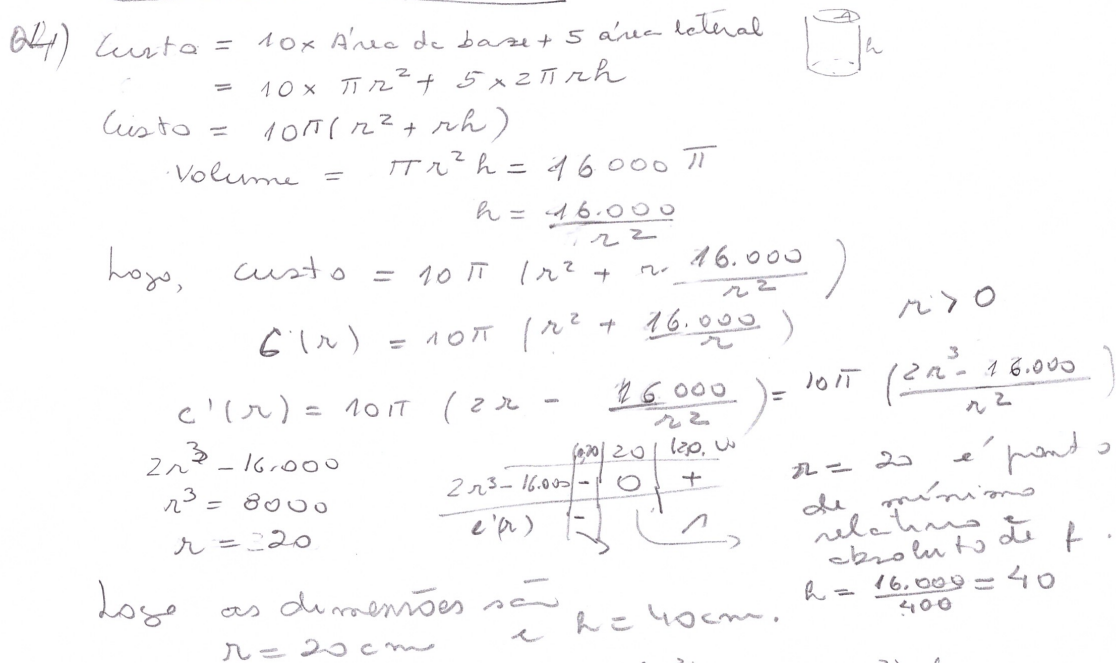 Q4) Custo = 10 x Área da base + 5 área lateral
= 10 x πr² + 5 x 2πrh
h
Custo = 10π(r² + rh)
Volume = πr²h = 16.000π
h = 16.000/r²
Logo, custo = 10π (r² + r. 16.000/r²)
C(r) = 10π (r² + 16.000/r) r > 0
c'(r) = 10π (2r - 16000/r²) = 10π (2r³ - 16.000/r²)
2r³ - 16.000
r³ = 8000
r = 20
(0,20) | 20 | (20, ∞
2r³ - 16.000 | - | 0 | +
c'(r) | -
r = 20 é ponto
de mínimo
relativo e
absoluto de f.
h = 16.000/400 = 40
Logo as dimensões são
r = 20 cm e h = 40cm.